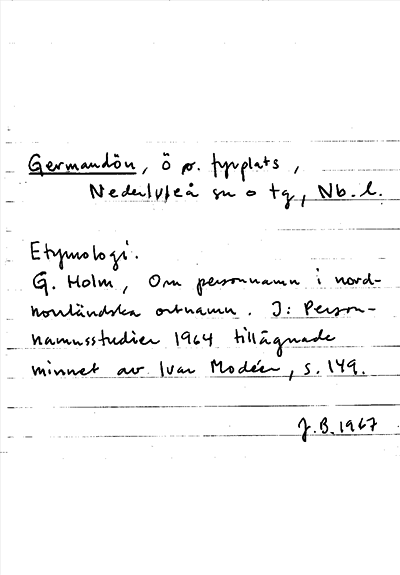 Germandön, ö o. fyrplats,
Nederluleå sn o tg, Nb. l.
Etymologi.
G. Holm, Om personnamn i nord-
norrländska ortnamn. I: Person-
namnsstudier 1964 tillägnade
minnet av Ivar Modéer, s. 149.
J.B. 1967